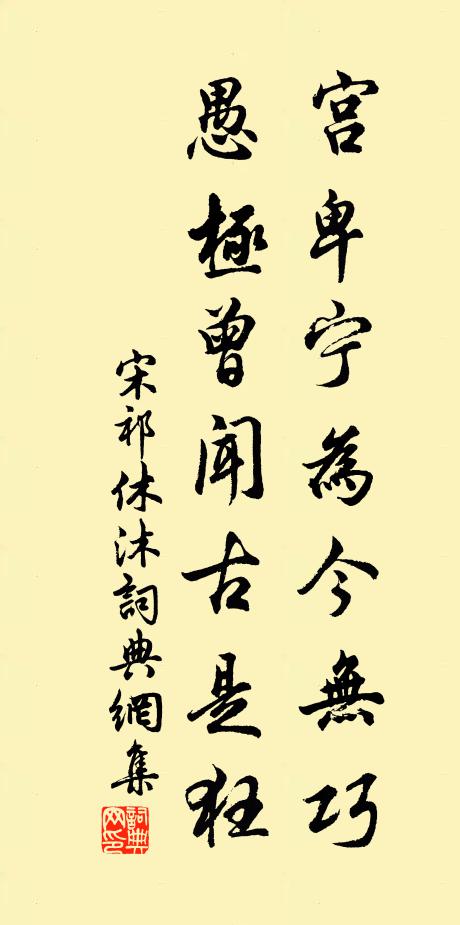 宫卑宁為今無巧
愚極曾聞古是狂
宋祁休沐詞典網集
詞典网印